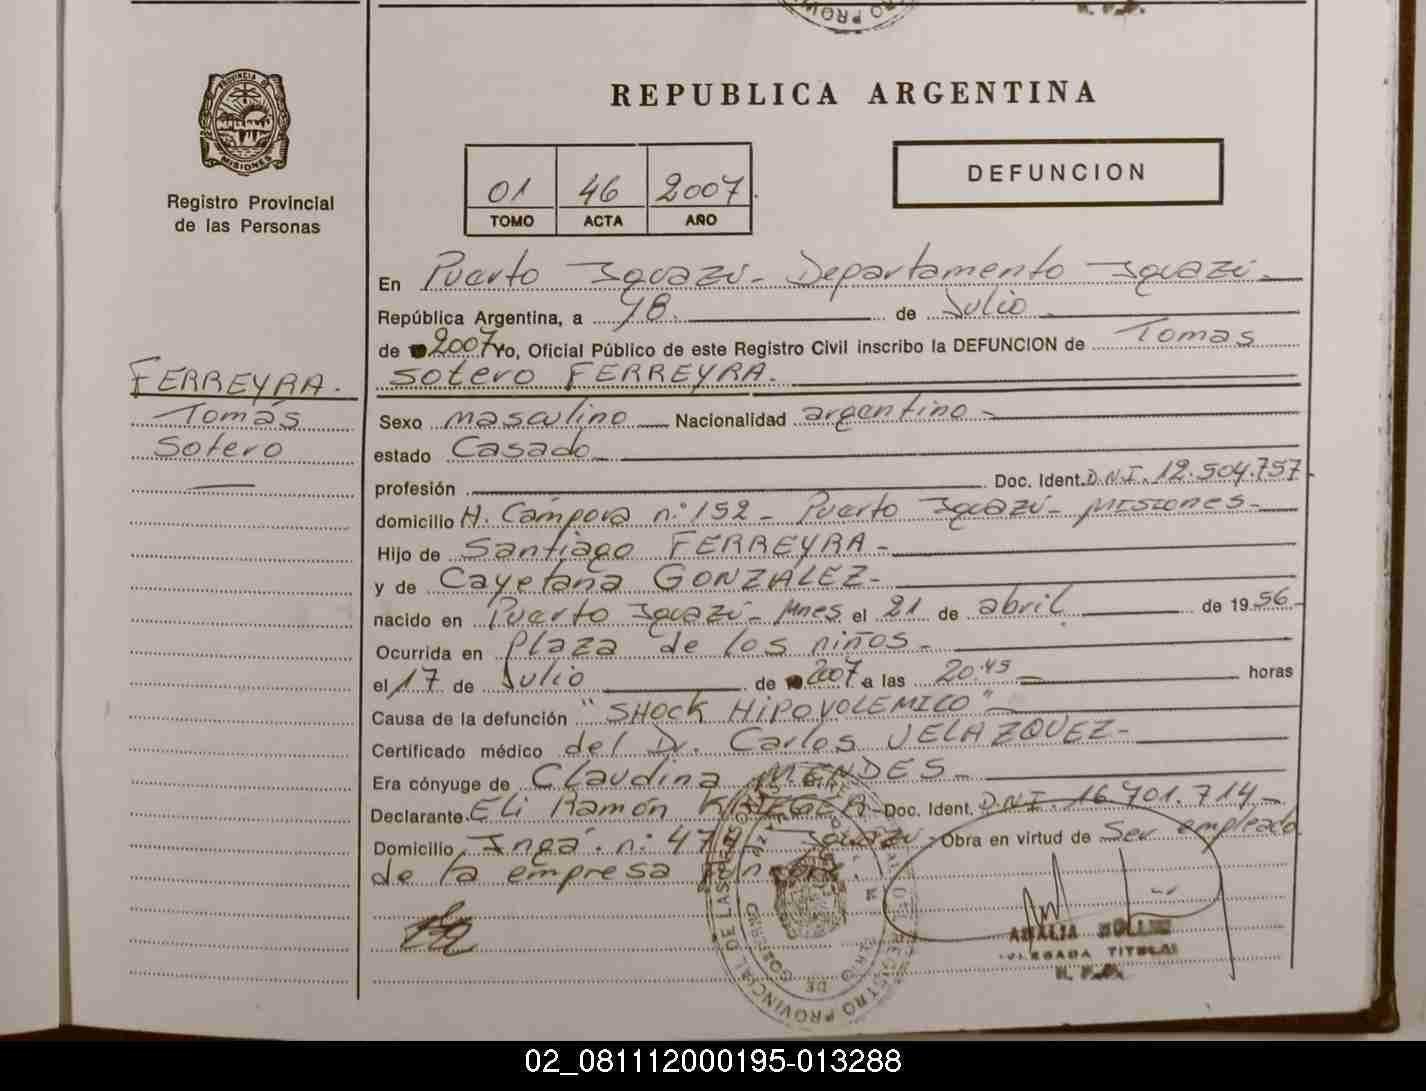 REPUBLICA ARGENTINA
PROVINCIA DE
MISIONES
Registro Provincial
de las Personas
01 46 2007.
TOMO ACTA AÑO
DEFUNCION
En Puerto Iguazú - Departamento Iguazú -
República Argentina, a 18. de Julio
de 2007 Yo, Oficial Público de este Registro Civil inscribo la DEFUNCION de Tomas
Sotero FERREYRA.
FERREYRA.
Tomás
Sotero
Sexo masculino Nacionalidad argentino -
estado Casado
profesión Doc. Ident. D.N.I. 12.504.757
domicilio H. Cámpora n:152 - Puerto Iguazú - MISIONES -
Hijo de Santiago FERREYRA -
y de Cayetana GONZALEZ -
nacido en Puerto Iguazú - Mnes el 21 de abril de 1956 -
Ocurrida en Plaza de los niños -
el 17 de Julio de 2007 a las 20:45 horas
Causa de la defunción "SHOCK HIPOVOLEMICO"
Certificado médico del Dr. Carlos VELAZQUEZ -
Era cónyuge de Claudina MENDES -
Declarante Eli Ramón Doc. Ident. D.N.I. 16.701.714 -
Domicilio n: Iguazú - Obra en virtud de ser empleado
de la empresa
AMALIA
DELEGADA TITULAR
R. P. P.
02_081112000195-013288